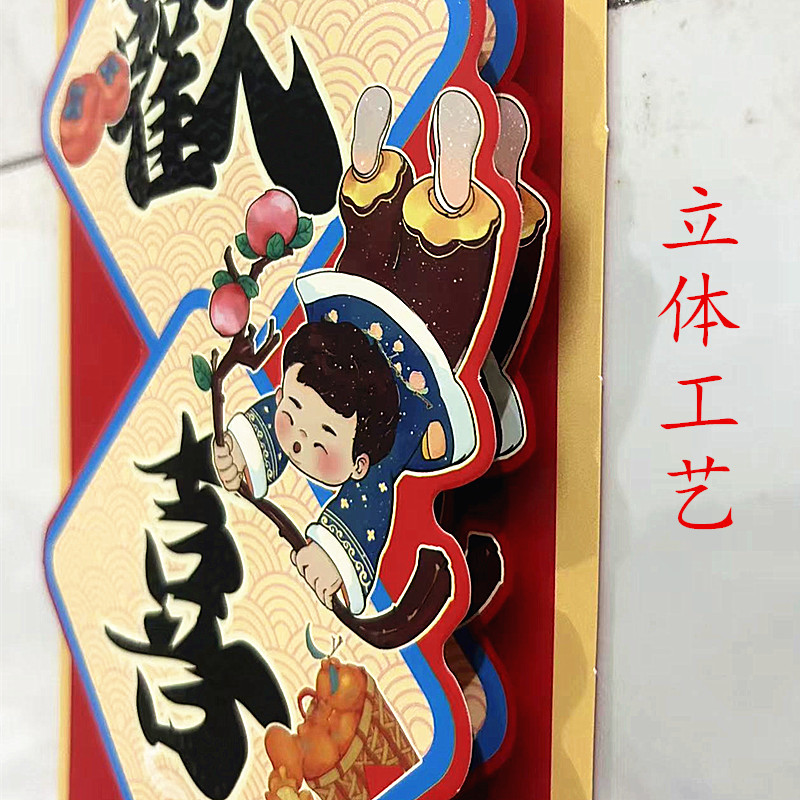 歡
喜
立体工艺